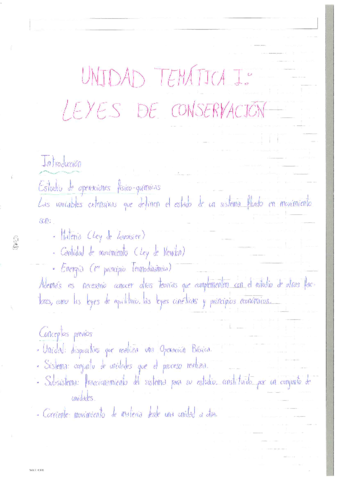 UNIDAD TEMÁTICA I:
LEYES DE CONSERVACIÓN
Introducción
Estudio de operaciones físico-químicas
Las variables extensivas que definen el estado de un sistema fluido en movimiento
son:
· Materia (Ley de Lavoisier)
· Cantidad de movimiento (Ley de Newton)
· Energía (1er principio Termodinámica)
Además es necesario conocer otras teorías que complementen con el estudio de otros
como las leyes de equilibrio, las leyes cinéticas y principios económicos
Conceptos previos
- Unidad: dispositivo que realiza una Operación Básica.
- Sistema: conjunto de unidades que el proceso
- Subsistema: del sistema para su estudio, constituido por un conjunto de
unidades.
- Corriente: movimiento de materia desde una unidad a otra.